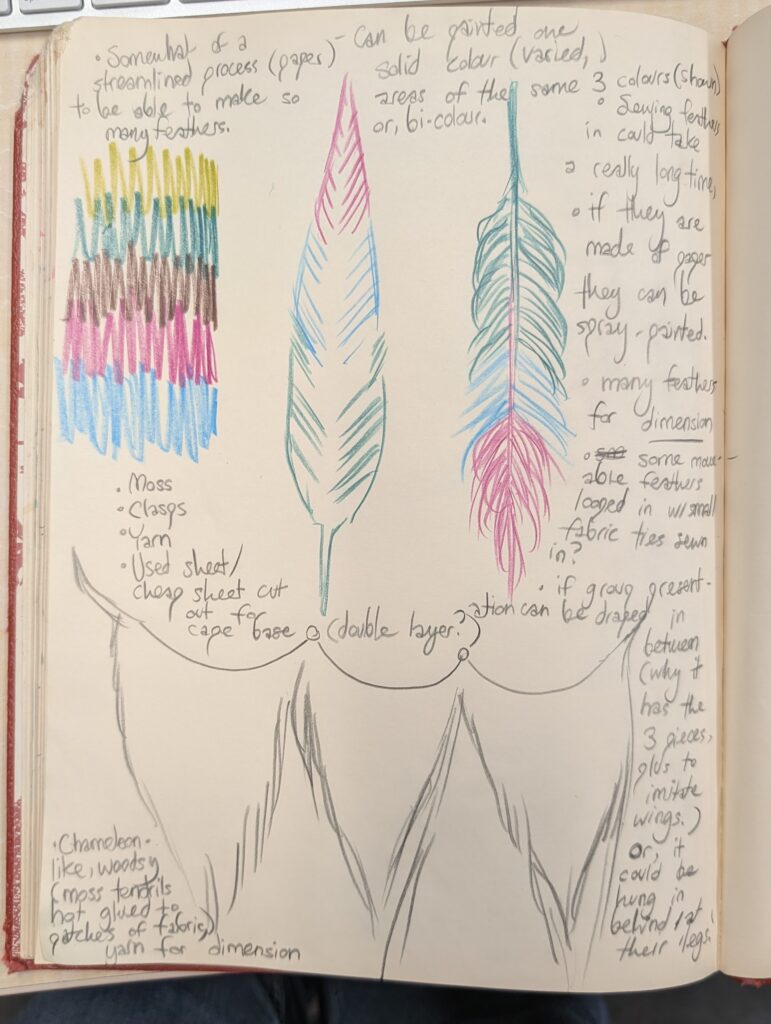 • Somewhat of a
streamlined process (paper)
to be able to make so
many feathers.
- Can be painted one
solid colour (varied,)
areas of the same 3 colours (shown)
or, bi-colour.
• Sewing feathers
in could take
a really long time,
• if they are
made of paper
they can be
spray-painted.
• many feathers
for dimension
• some move-
able feathers
looped in w/small
fabric ties sewn
in?
• if group present-
ation can be draped
in
between
(why it
has the
3 pieces,
plus to
imitate
wings.)
or, it
could be
hung in
behind / at
their legs!
• Moss
• Clasps
• Yarn
• Used sheet/
cheap sheet cut
out for
cape base (double layer?)
• Chameleon-
like, woodsy
(moss tendrils
hot glued to
patches of fabric,)
yarn for dimension